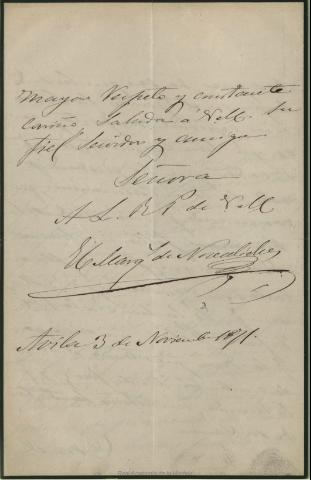 mayor respeto y constante
cariño saluda a V.M. su
fiel servidor y amigo
Señora
A L. R P de V.M
El Marq. de Novaliches
Avila 3 de Noviembre 1871.
Real Academia de la Historia